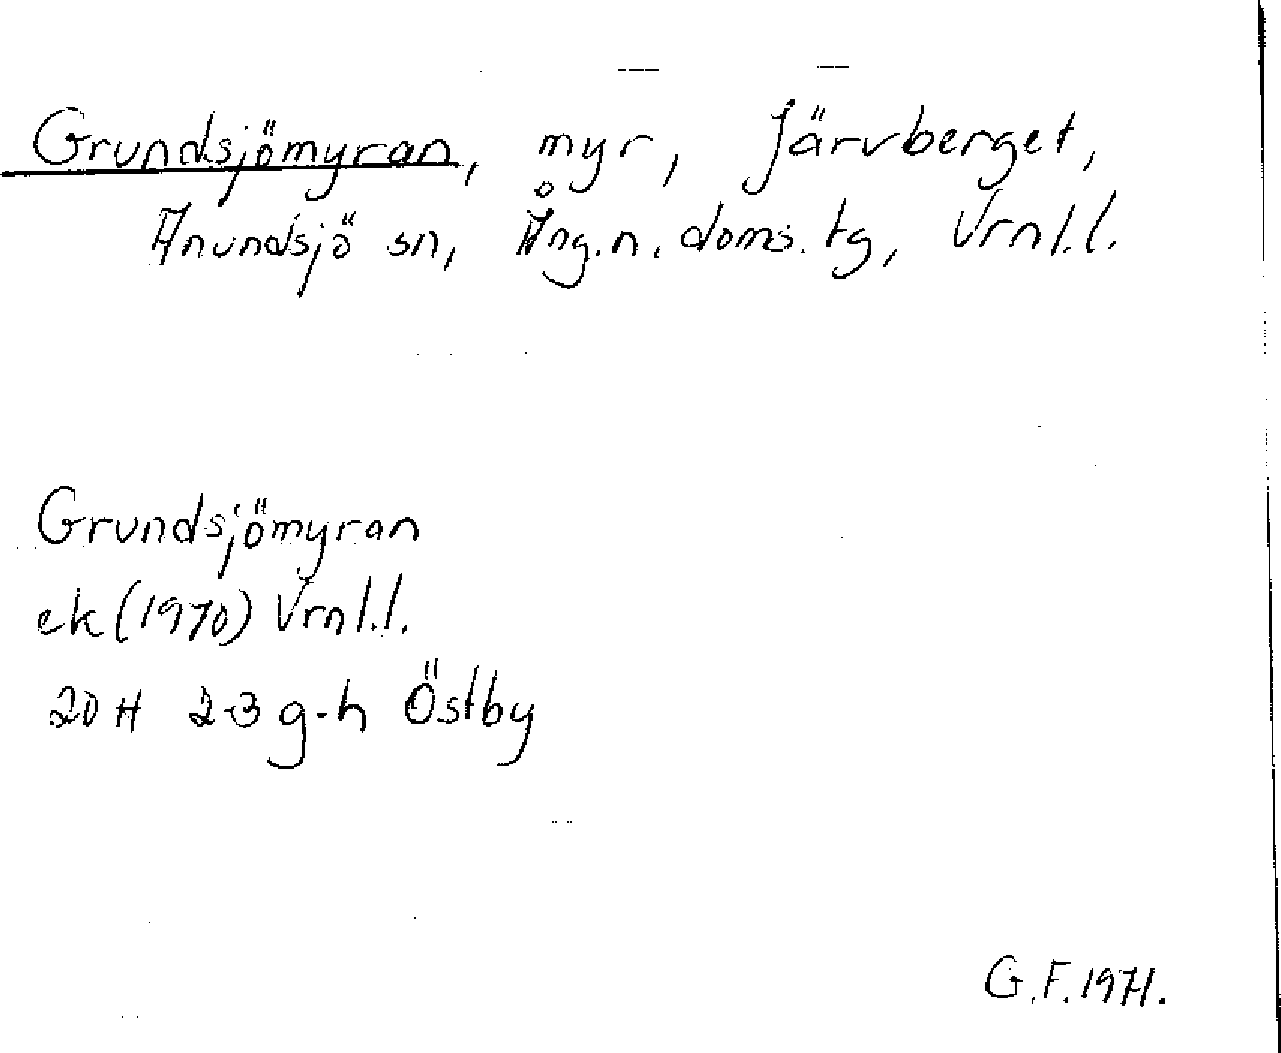 Grundsjömyran, myr, Järvberget,
Anundsjö sn, Ång.n. doms. tg, Vrnl.l.
Grundsjömyran
ek (1970) Vrnl.l.
20 H 2-3 g-h Östby
G.F. 1971.